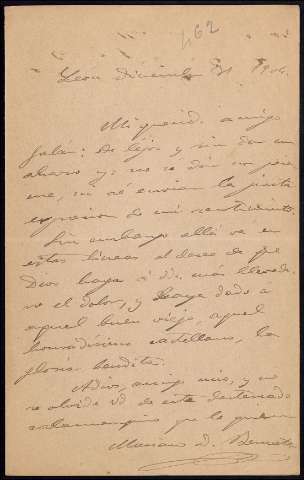 462
León diciembre 31 1904.
Mi querido amigo
Galán: De lejos y sin dar un
abrazo yo no se dar un pésa-
me, ni al enviar la justa
expresión de mi sentimiento.
Sin embargo allá va en
estas líneas el deseo de que
Dios haga á Vds. más llevade-
ro el dolor, y haya dado á
aquel buen viejo, aquel
honradísimo castellano, la
gloria bendita.
Adios, amigo mío, y no
se olvide Vd de este desterrado
salmanquino que le quiere
Mariano D. Berrueta